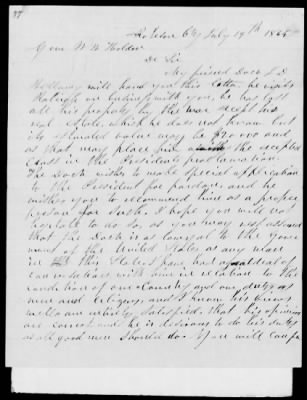 July 19th 1865
Gov W W Holden
Dr Sir
My friend Doct J D
will hand you this letter, he visits
Raleigh on business with you, he has lost
all his property by the war except his
real estate, which he does not know but
its value may be $20000 and
as that may place him in the excepted
class in the Presidents proclamation.
The Doct wishes to make special application
to the President for pardon, and he
wishes you to recommend him as a proper
person for such. I hope you will not
hesitate to do so, as you may rest assured
that the Doct is as loyal to the gover
ment of the United States as any man
in this State, I have had a good deal of
conversation with him in relation to the
condition of our Country and our duty as
men and citizens, and I know his views
well am entirely satisfied that his opinions
are correct and he is desirous to do his duty
as all good men should do. You will confer